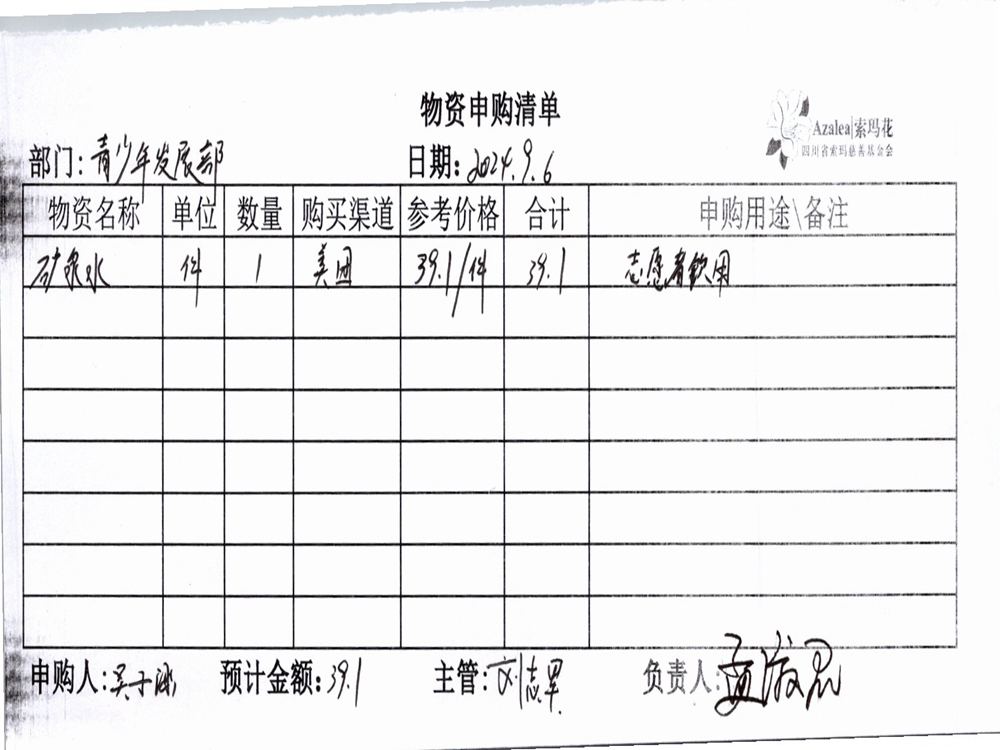 物资申购清单
Azalea|索玛花
四川省索玛慈善基金会
部门:青少年发展部 日期:2024.9.6
物资名称 单位 数量 购买渠道 参考价格 合计 申购用途\备注
矿泉水 件 1 美团 39.1/件 39.1 志愿者飲用
申购人:吴子 预计金额:39.1 主管:刘志军 负责人: